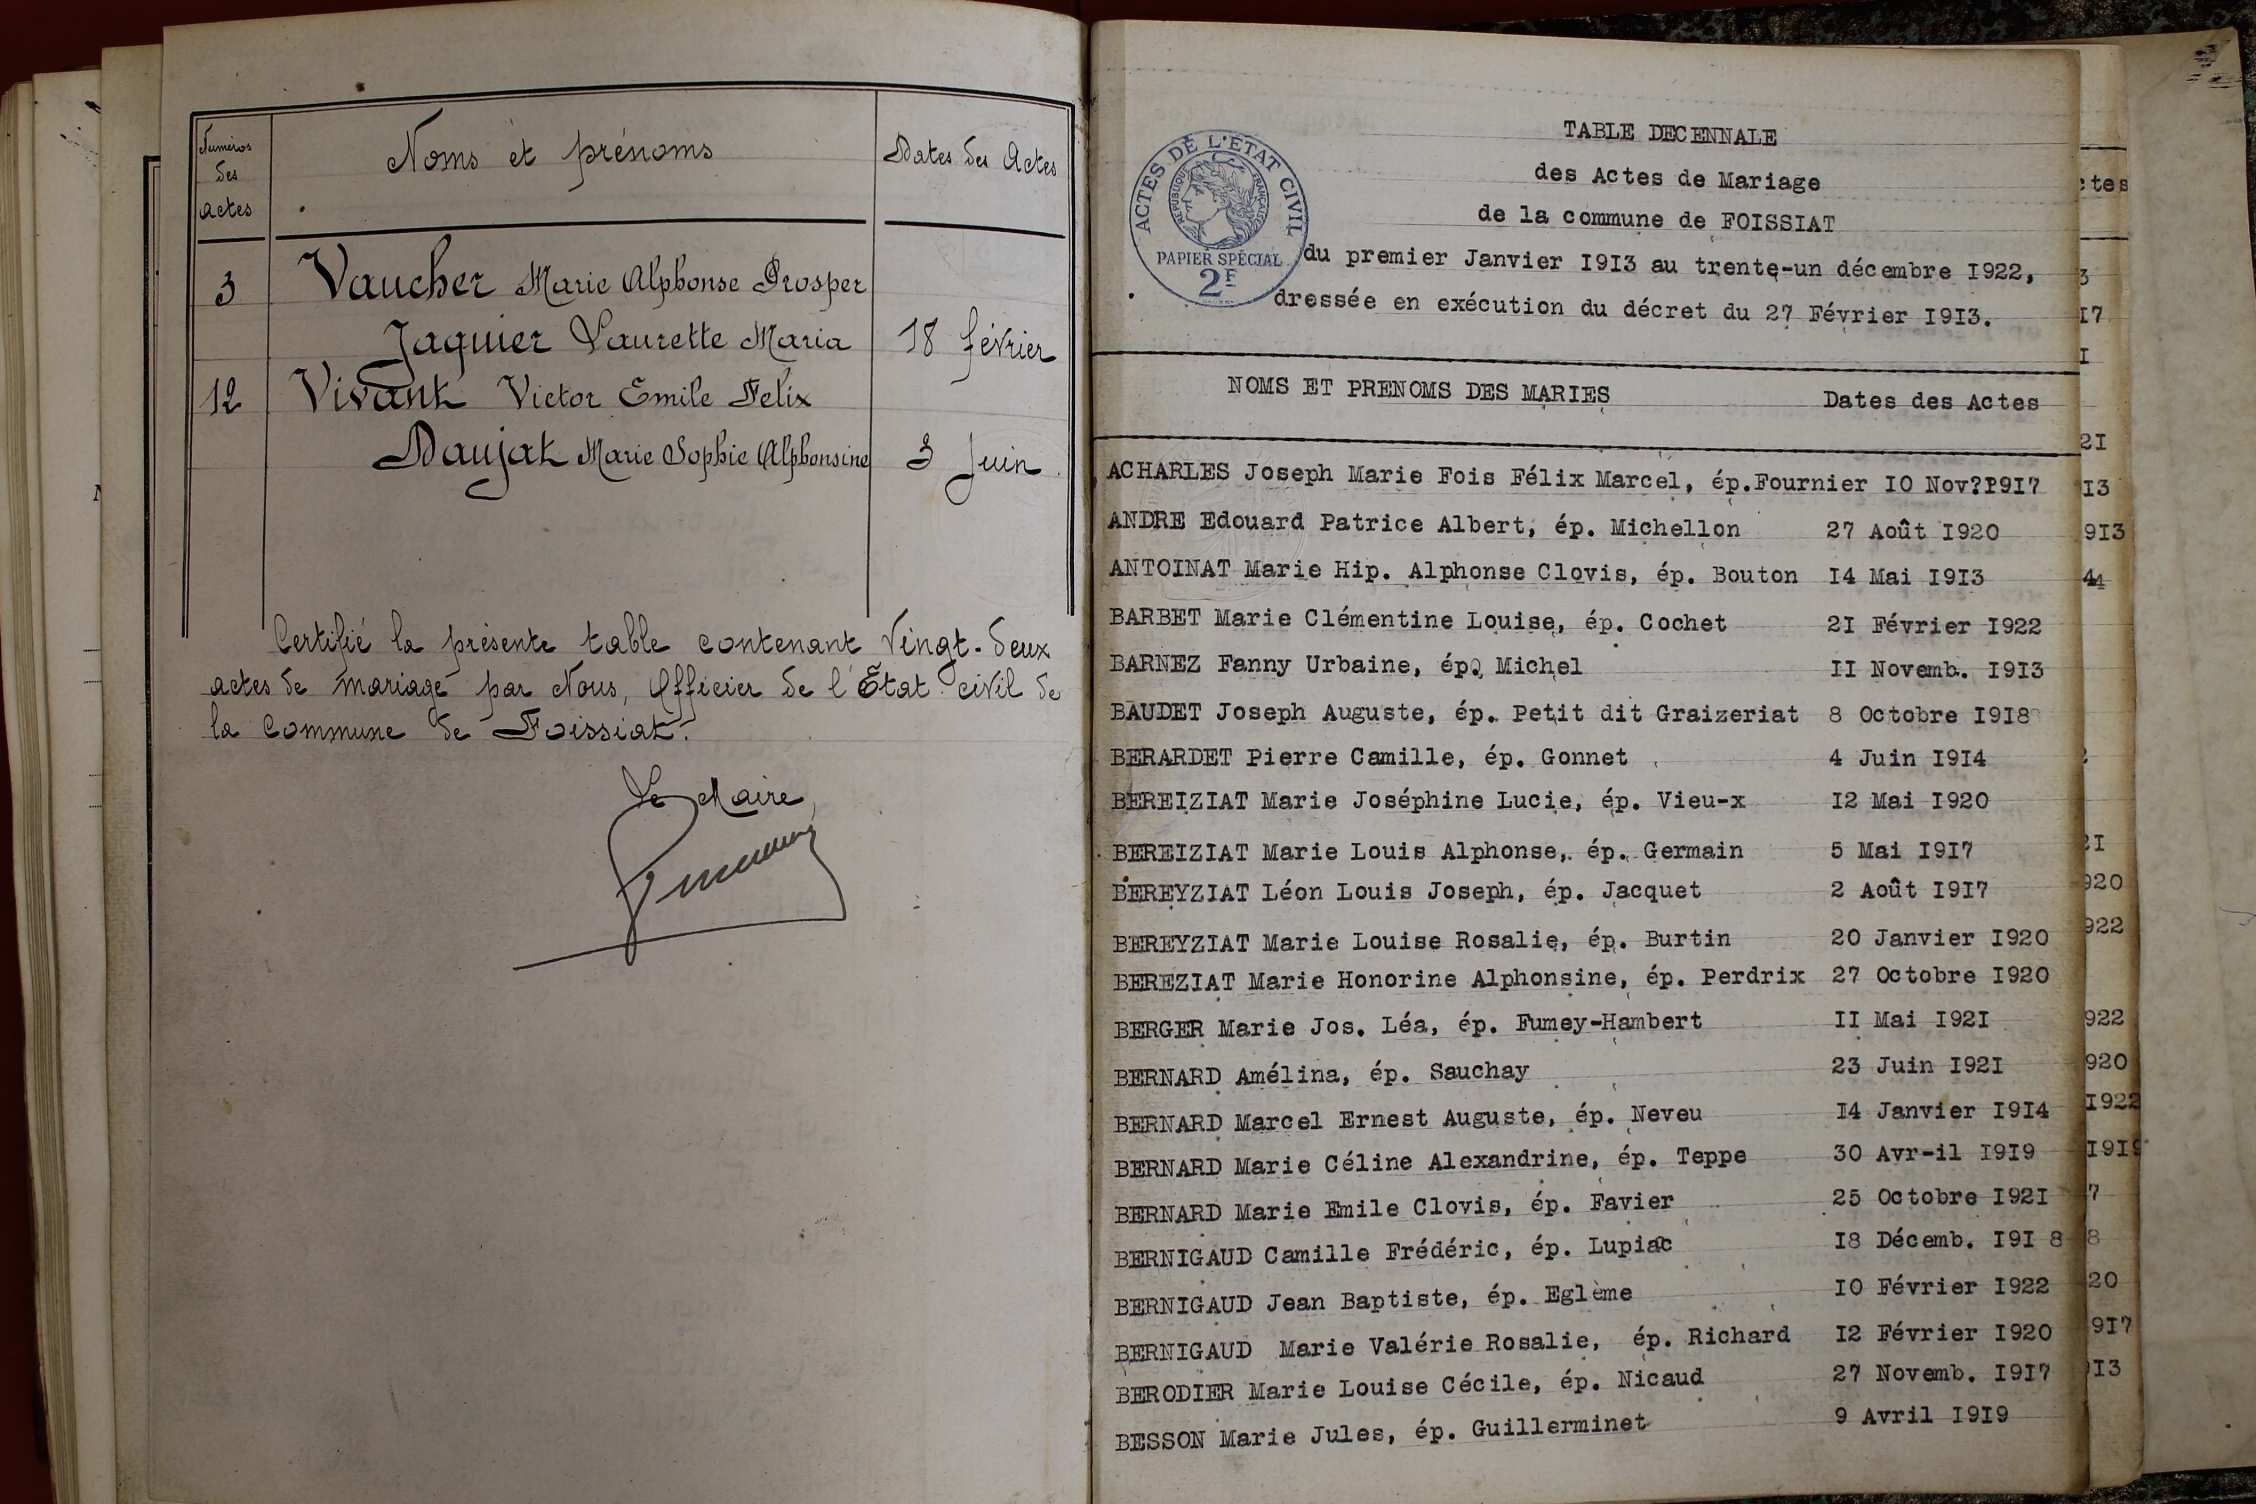 Numéros des actes
Noms et prénoms
Dates des Actes
3 Vaucher Marie Alphonse Prosper
Jaquier Laurette Maria 18 février
12 Vivant Victor Emile Felix
Daujat Marie Sophie Alphonsine 3 Juin
Certifié la présente table contenant vingt-deux
actes de mariage par Nous, Officier de l'État civil de
la Commune de Foissiat.
Le Maire,
ACTES DE L'ETAT CIVIL
REPUBLIQUE FRANÇAISE
PAPIER SPÉCIAL
2F
TABLE DECENNALE
des Actes de Mariage
de la commune de FOISSIAT
du premier Janvier I9I3 au trente-un décembre I922,
dressée en exécution du décret du 27 Février I9I3.
NOMS ET PRENOMS DES MARIES Dates des Actes
ACHARLES Joseph Marie Fois Félix Marcel, ép.Fournier IO Nov?I9I7
ANDRE Edouard Patrice Albert, ép. Michellon 27 Août I920
ANTOINAT Marie Hip. Alphonse Clovis, ép. Bouton I4 Mai I9I3
BARBET Marie Clémentine Louise, ép. Cochet 2I Février I922
BARNEZ Fanny Urbaine, ép. Michel II Novemb. I9I3
BAUDET Joseph Auguste, ép. Petit dit Graizeriat 8 Octobre I9I8
BERARDET Pierre Camille, ép. Gonnet 4 Juin I9I4
BEREIZIAT Marie Joséphine Lucie, ép. Vieu-x I2 Mai I920
BEREIZIAT Marie Louis Alphonse, ép. Germain 5 Mai I9I7
BEREYZIAT Léon Louis Joseph, ép. Jacquet 2 Août I9I7
BEREYZIAT Marie Louise Rosalie, ép. Burtin 20 Janvier I920
BEREZIAT Marie Honorine Alphonsine, ép. Perdrix 27 Octobre I920
BERGER Marie Jos. Léa, ép. Fumey-Hambert II Mai I92I
BERNARD Amélina, ép. Sauchay 23 Juin I92I
BERNARD Marcel Ernest Auguste, ép. Neveu I4 Janvier I9I4
BERNARD Marie Céline Alexandrine, ép. Teppe 30 Avr-il I9I9
BERNARD Marie Emile Clovis, ép. Favier 25 Octobre I92I
BERNIGAUD Camille Frédéric, ép. Lupiac I8 Décemb. I9I 8
BERNIGAUD Jean Baptiste, ép. Eglème IO Février I922
BERNIGAUD Marie Valérie Rosalie, ép. Richard I2 Février I920
BERODIER Marie Louise Cécile, ép. Nicaud 27 Novemb. I9I7
BESSON Marie Jules, ép. Guillerminet 9 Avril I9I9